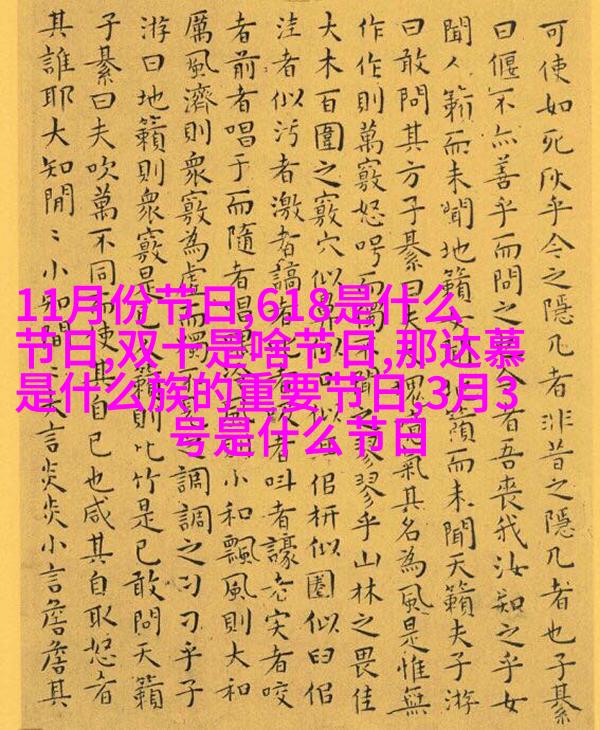 可使如死灰乎今之隱几者非昔之隱几者也子綦
曰偃不亦善乎而問之今者吾喪我汝知之乎女
聞人籟而未聞地籟女聞地籟而未聞天籟夫子游
曰敢問其方子綦曰夫塊氣其名為風是惟無
作作則萬竅怒呺而獨不聞之翏翏乎山林之畏佳
大木百圍之竅穴似鼻似口似耳似枅似圈似臼似
洼者似污者激者謞者叱者吸者叫者譹者宎者咬
者前者唱于而隨者唱喁泠風則小和飄風則大和
厲風濟則衆竅為虛而獨不見之調調之刁刁乎子
游曰地籟則衆竅是已人籟則比竹是已敢問天籟
子綦曰夫吹萬不同而使其自已也咸其自取怒者
其誰耶大知閑〻小知間〻大言炎炎小言詹詹其
11月份节日,618是什么
节日,双十是啥节日,那达慕
是什么族的重要节日,3月3
号是什么节日